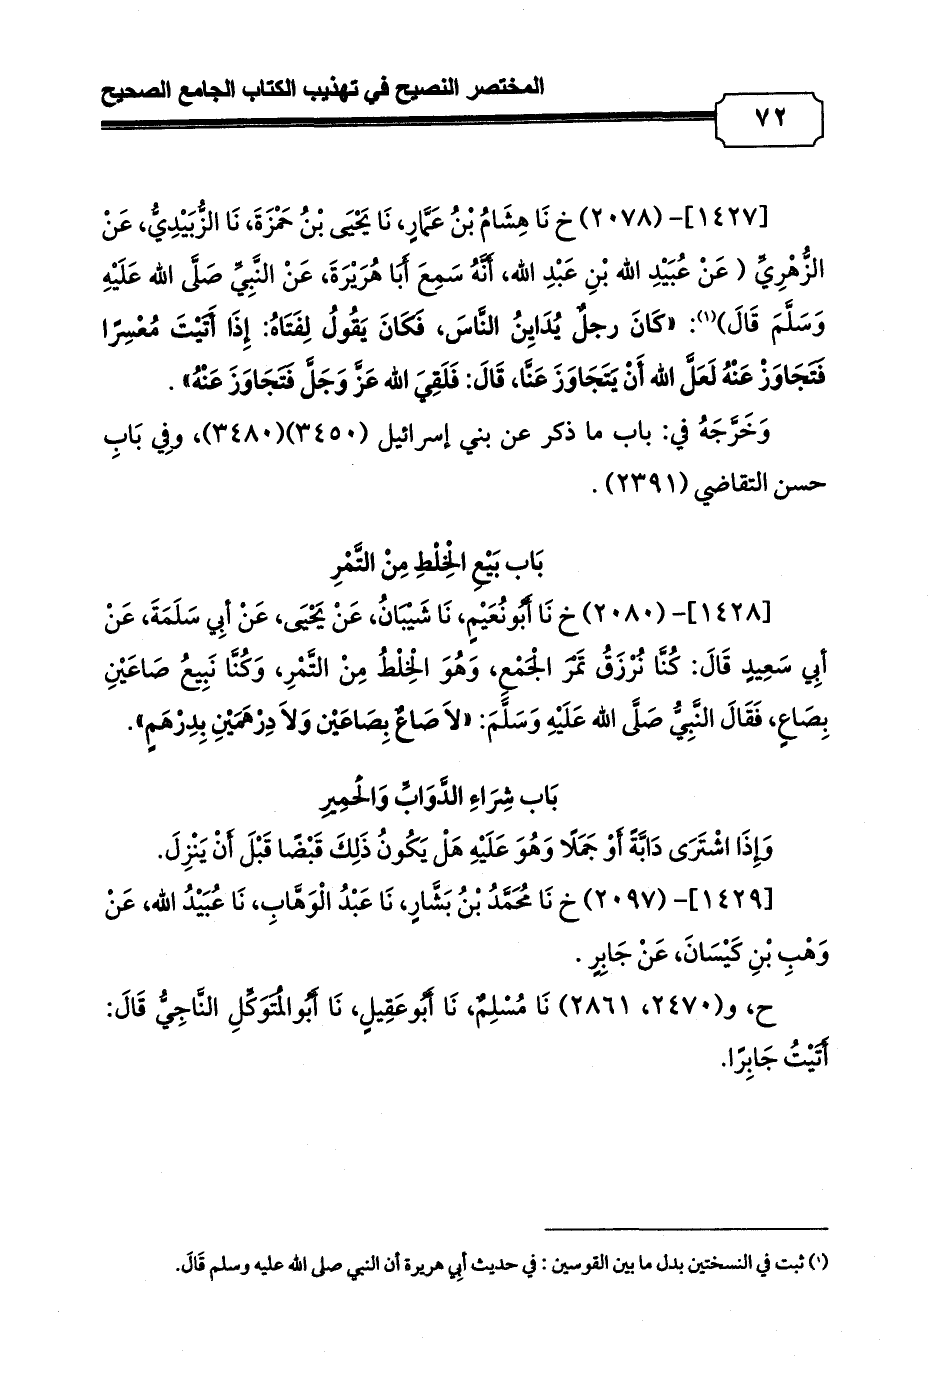 المختصر النصيح في تهذيب الكتاب الجامع الصحيح
٧٢
[١٤٢٧]- (٢٠٧٨) خ نَا هِشَامُ بْنُ عَمَّارٍ، نَا يَحْيَى بْنُ حَمْزَةَ، نَا الزُّبَيْدِيُّ، عَنْ
الزُّهْرِيِّ ( عَنْ عُبَيْدِ الله بْنِ عَبْدِ الله، أَنَّهُ سَمِعَ أَبَا هُرَيْرَةَ، عَنْ النَّبِيِّ صَلَّى الله عَلَيْهِ
وَسَلَّمَ قَالَ)(١): «كَانَ رجلٌ يُدَاينُ النَّاسَ، فَكَانَ يَقُولُ لِفَتَاهُ: إِذَا أَتَيْتَ مُعْسِرًا
فَتَجَاوَزْ عَنْهُ لَعَلَّ الله أَنْ يَتَجَاوَزَ عَنَّا، قَالَ: فَلَقِيَ الله عَزَّ وَجَلَّ فَتَجَاوَزَ عَنْهُ» .
وَخَرَّجَهُ فِي: باب ما ذكر عن بني إسرائيل (٣٤٥٠)(٣٤٨٠)، وفِي بَابِ
حسن التقاضي (٢٣٩١) .
بَاب بَيْعِ الْخِلْطِ مِنْ التَّمْرِ
[١٤٢٨]- (٢٠٨٠) خ نَا أَبُونُعَيْمٍ، نَا شَيْبَانُ، عَنْ يَحْيَى، عَنْ أبِي سَلَمَةَ، عَنْ
أبِي سَعِيدٍ قَالَ: كُنَّا نُرْزَقُ تَمْرَ الْجَمْعِ، وَهُوَ الْخِلْطُ مِنْ التَّمْرِ، وَكُنَّا نَبِيعُ صَاعَيْنِ
بِصَاعٍ، فَقَالَ النَّبِيُّ صَلَّى الله عَلَيْهِ وَسَلَّمَ: «لاَ صَاعٌ بِصَاعَيْن وَلاَ دِرْهَمَيْنِ بِدِرْهَمٍ».
بَاب شِرَاءِ الدَّوَابِّ وَالْحَمِيرِ
وَإِذَا اشْتَرَى دَابَّةً أَوْ جَمَلًا وَهُوَ عَلَيْهِ هَلْ يَكُونُ ذَلِكَ قَبْضًا قَبْلَ أَنْ يَنْزِلَ.
[١٤٢٩]- (٢٠٩٧) خ نَا مُحَمَّدُ بْنُ بَشَّارٍ، نَا عَبْدُ الْوَهَّابِ، نَا عُبَيْدُ الله، عَنْ
وَهْبِ بْنِ كَيْسَانَ، عَنْ جَابِرٍ .
ح، و(٢٤٧٠، ٢٨٦١) نَا مُسْلِمٌ، نَا أَبُوعَقِيلٍ، نَا أَبُوالْمُتَوَكِّلِ النَّاجِيُّ قَالَ:
أَتَيْتُ جَابِرًا.
(١) ثبت في النسختين بدل ما بين القوسين : في حديث أبِي هريرة أن النبي صلى الله عليه وسلم قَالَ.